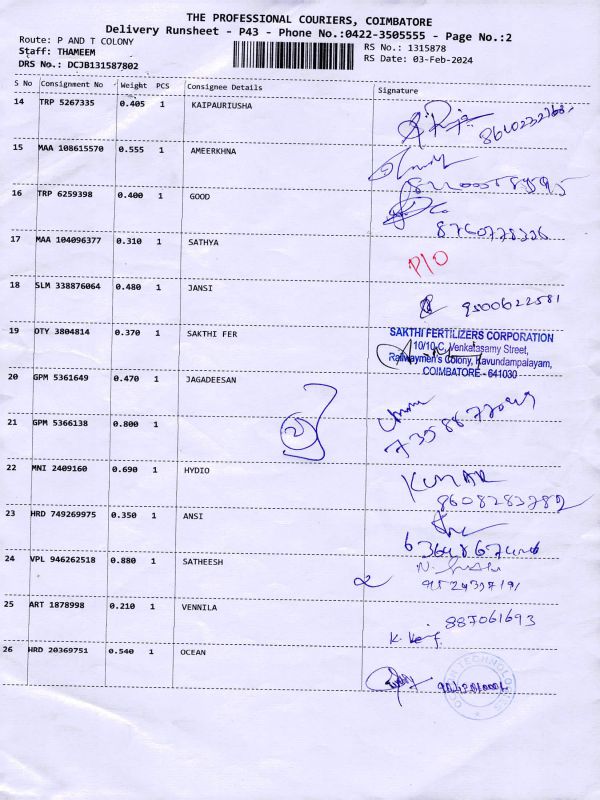 THE PROFESSIONAL COURIERS, COIMBATORE
Delivery Runsheet - P43 - Phone No.:0422-3505555 - Page No.:2
Route: P AND T COLONY
RS No.: 1315878
Staff: THAMEEM
RS Date: 03-Feb-2024
DRS No.: DCJB131587802
S No Consignment No Weight PCS Consignee Details Signature
14 TRP 5267335 0.405 1 KAIPAURIUSHA
15 MAA 108615570 0.555 1 AMEERKHNA
16 TRP 6259398 0.400 1 GOOD
8760778326
17 MAA 104096377 0.310 1 SATHYA
P/O
18 SLM 338876064 0.480 1 JANSI
9500622581
19 OTY 3804814 0.370 1 SAKTHI FER
SAKTHI FERTILIZERS CORPORATION
10/10-C, Venkatasamy Street,
Railwaymen's Colony, Kavundampalayam,
COIMBATORE - 641030
20 GPM 5361649 0.470 1 JAGADEESAN
21 GPM 5366138 0.800 1
22 MNI 2409160 0.690 1 HYDIO
KUMAR
8608283282
23 HRD 749269975 0.350 1 ANSI
24 VPL 946262518 0.880 1 SATHEESH
25 ART 1878998 0.210 1 VENNILA
887061693
26 HRD 20369751 0.540 1 OCEAN